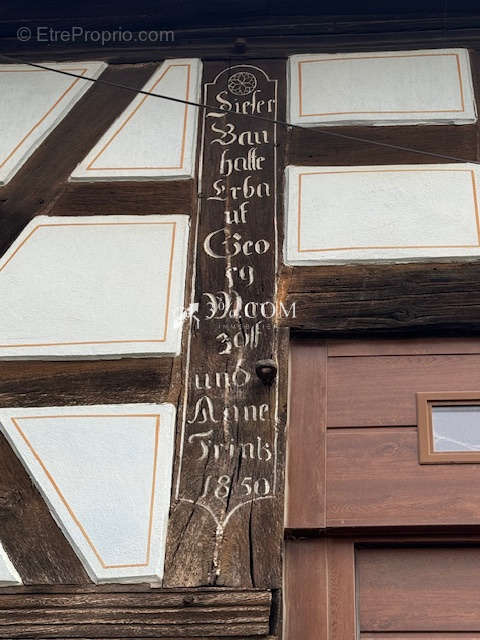 © EtreProprio.com
Dieser
Bau
hatte
Erba
ut
Geo
rg
zoll
und
Anne
Trink
1850
IMMOBILIER